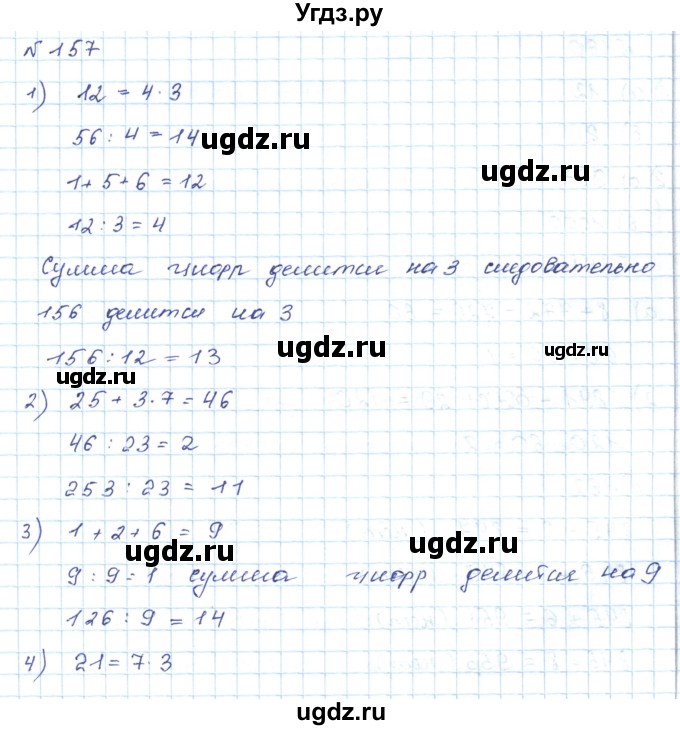 Угдз.ру
№ 157
1) 12 = 4·3
56 : 4 = 14
ugdz.ru
1 + 5 + 6 = 12
ugdz.ru
12 : 3 = 4
Сумма цифр делится на 3 следовательно
156 делится на 3
156 : 12 = 13
ugdz.ru
ugdz.ru
ugdz.ru
2) 25 + 3·7 = 46
46 : 23 = 2
253 : 23 = 11
3) 1 + 2 + 6 = 9
ugdz.ru
ugdz.ru
9 : 9 = 1 сумма цифр делится на 9
126 : 9 = 14
ugdz.ru
4) 21 = 7·3
ugdz.ru